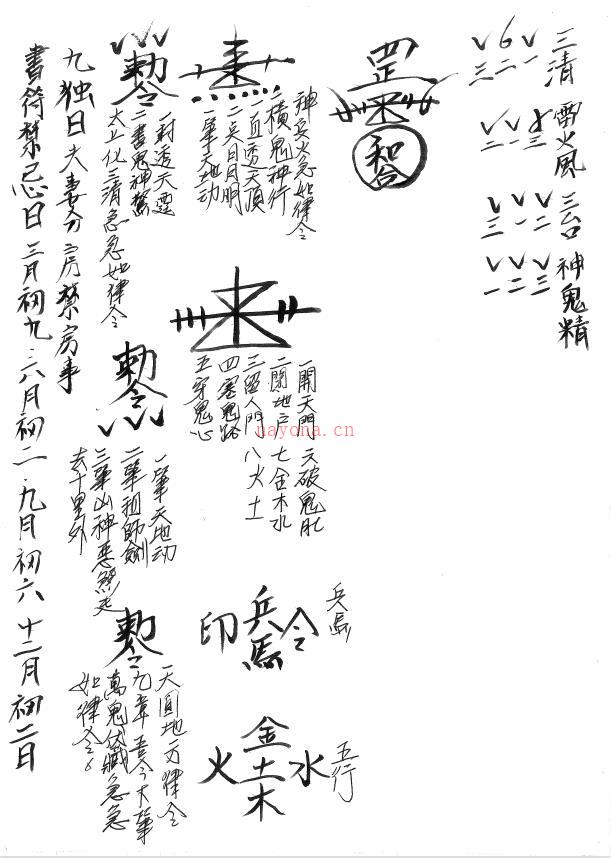 三清
雷火風
三台
神鬼精
罡
和合
神兵火急如律令
一橫鬼神行
一直透天頂
二点日月明
一筆天地动
敕令
一封透天靈
二書鬼神驚
太上化三清急急如律令
九独日夫妻分房禁房事
書符禁忌日三月初九.六月初二.九月初六十二月初二日
一開天門六破鬼肚
二閉地户七金木水
三留人門八火土
四塞鬼路
五穿鬼心
敕令
一筆天地动
二筆祖師劍
三筆山神惡煞走
去千里外
兵馬
兵馬
印
令
敕令
一天圓地方律令
九章
萬鬼伏藏急急
如律令
五行
金
火土水
木
nayona.cn